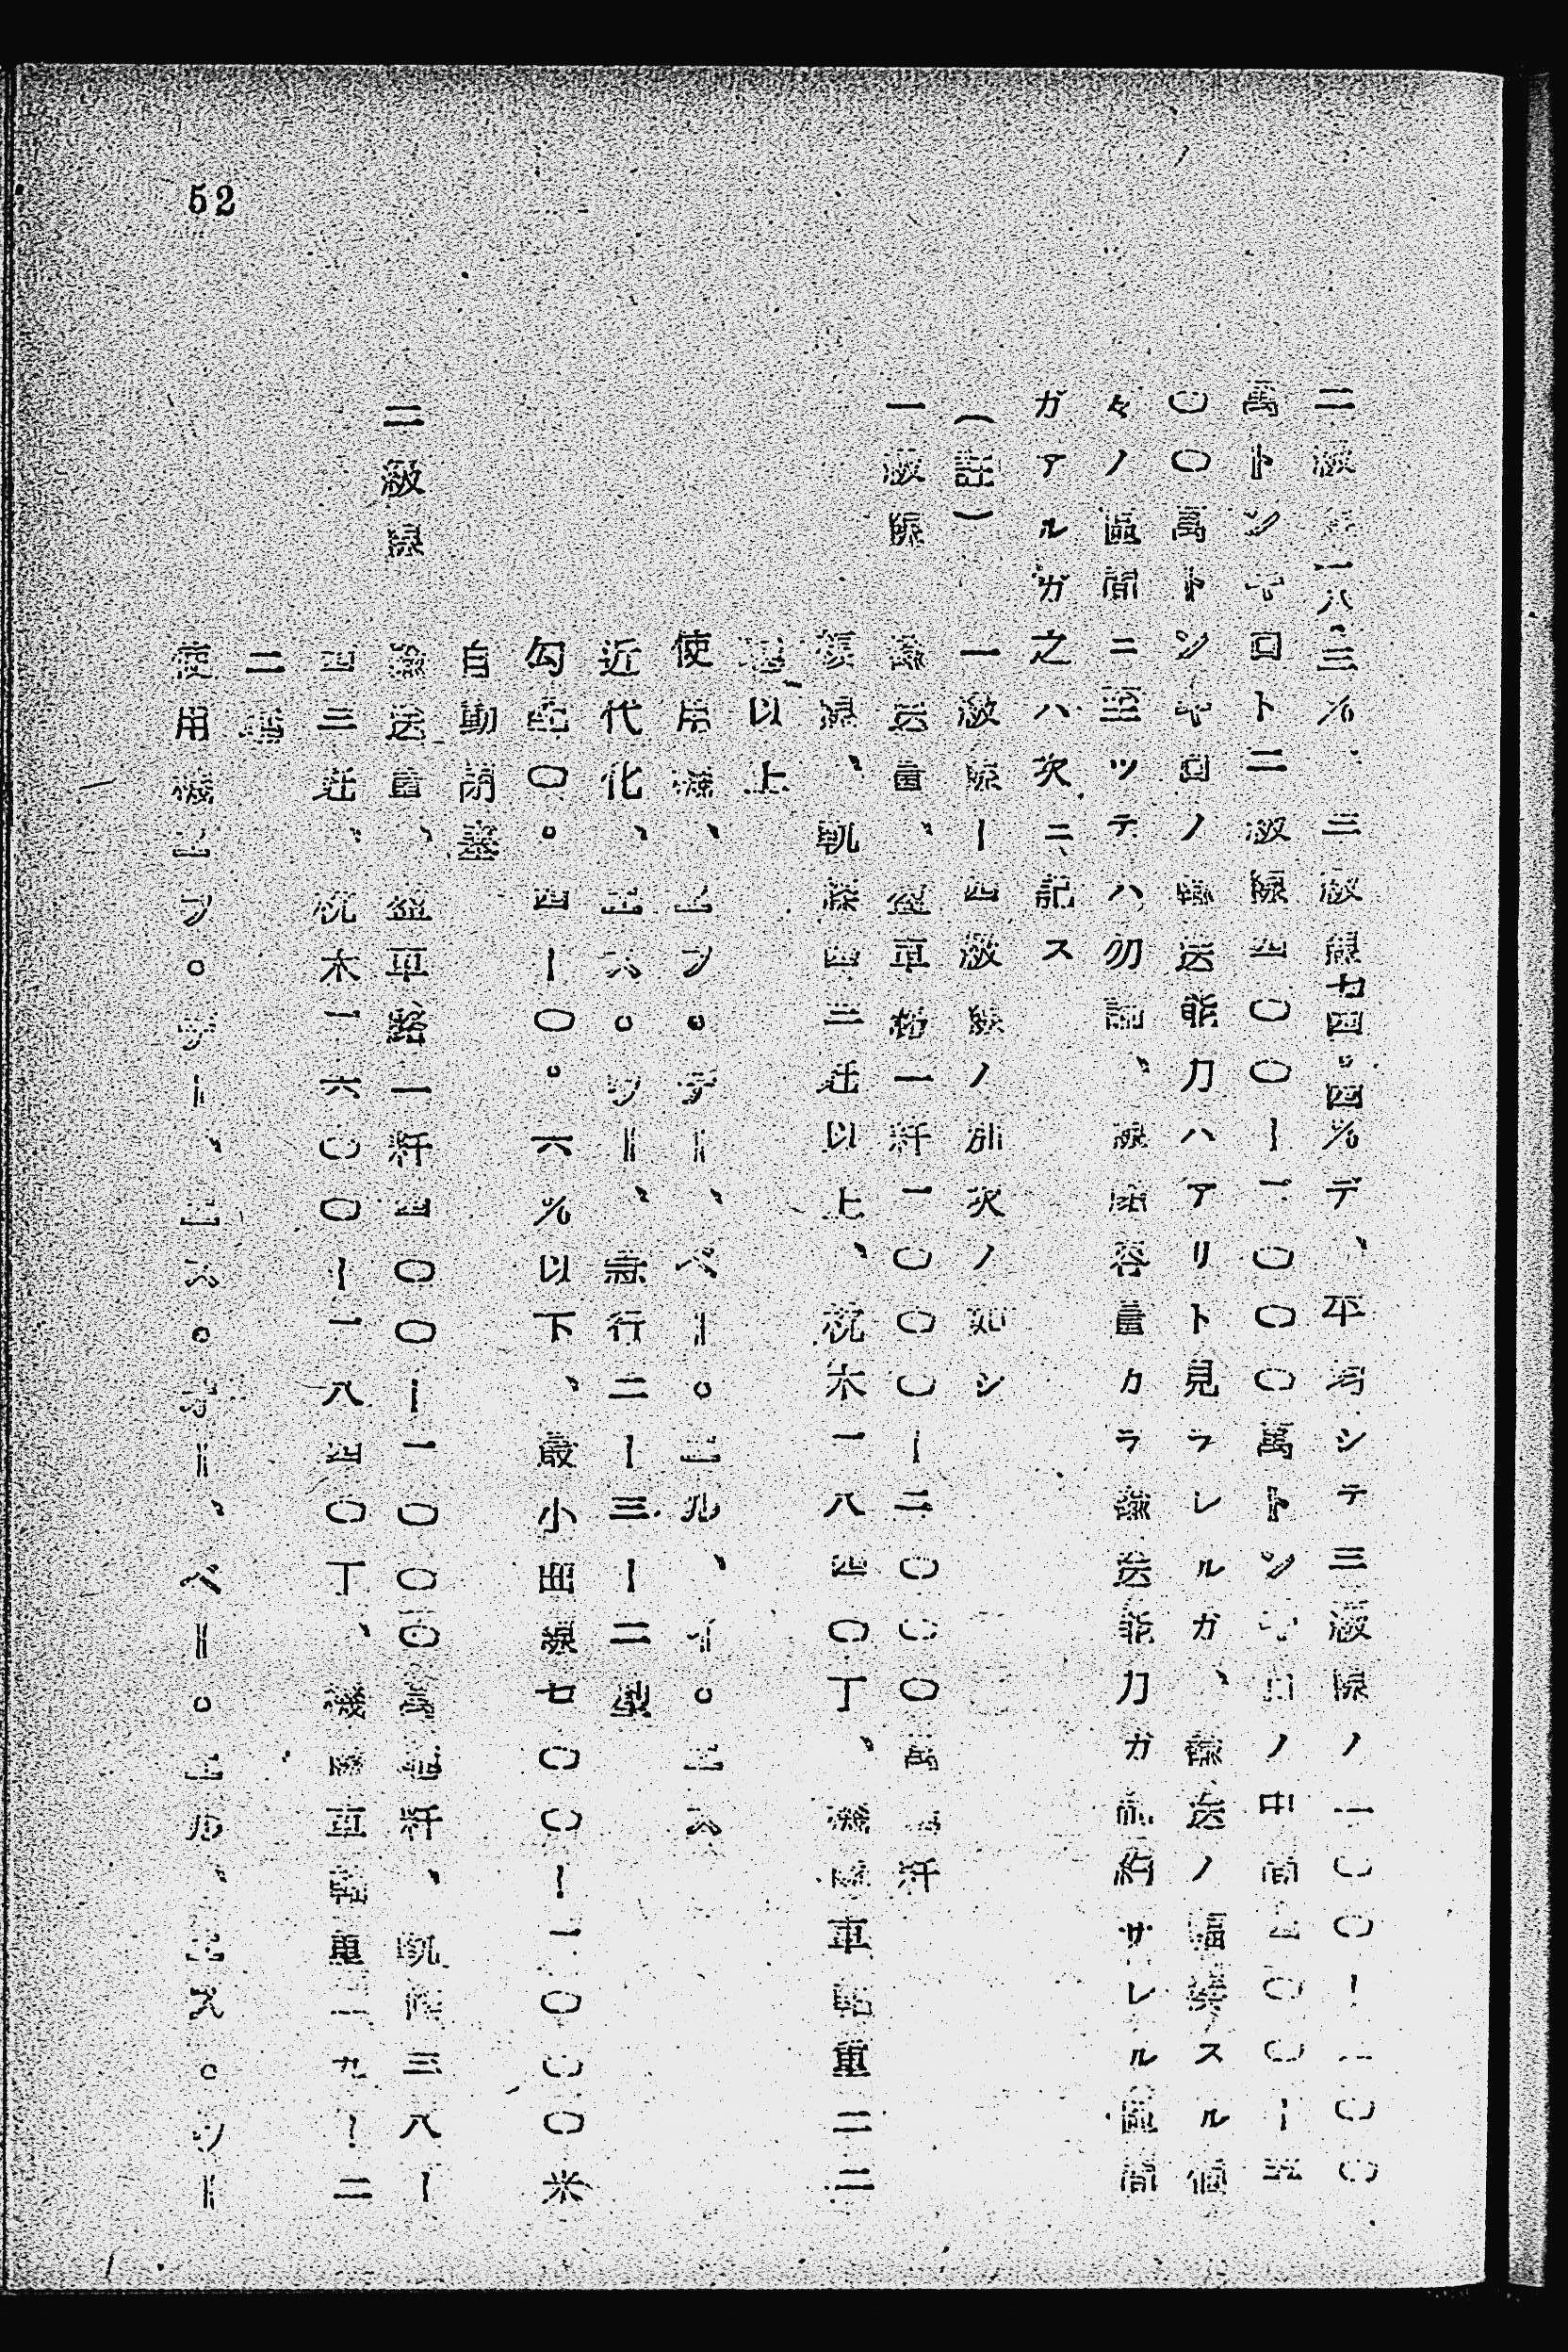 二級線一八・三％、三級線七四・四％デ、平均シテ三級線ノ一〇〇ー二〇〇
萬トンキロト二級線四〇〇ー一、〇〇〇萬トンキロノ中間四〇〇ー五
〇〇萬トンキロノ輸送能力ハアリト見ラレルガ、輸送ノ輻湊スル個
々ノ區間ニ至ツテハ勿論、線路容量カラ輸送能力ガ制約サレル區間
ガアルガ之ハ次ニ記ス
（註）
一級線ー四級線ノ別次ノ如シ
一級線 輸送量、營車粁一粁一〇〇〇ー二〇〇〇萬瓲粁
複線、軌條四三瓩以上、枕木一八四〇丁、機關車軸重二二
瓲以上
使用機、エフ。デー、ペー。エル、イ。エス
近代化、エス。ツー、急行二ー三ー二型
勾配〇。四ー〇。六％以下、最小曲線七〇〇ー一、〇〇〇米
自動閉塞
二級線 輸送量、營車路一粁四〇〇ー一〇〇〇萬瓲粁、軌條三八ー
四三瓩、枕木一六〇〇ー一八四〇丁、機關車軸重一九ー二
二瓲
使用機エフ。デー、エス。オー、ペー。エル、エス。ツー
52